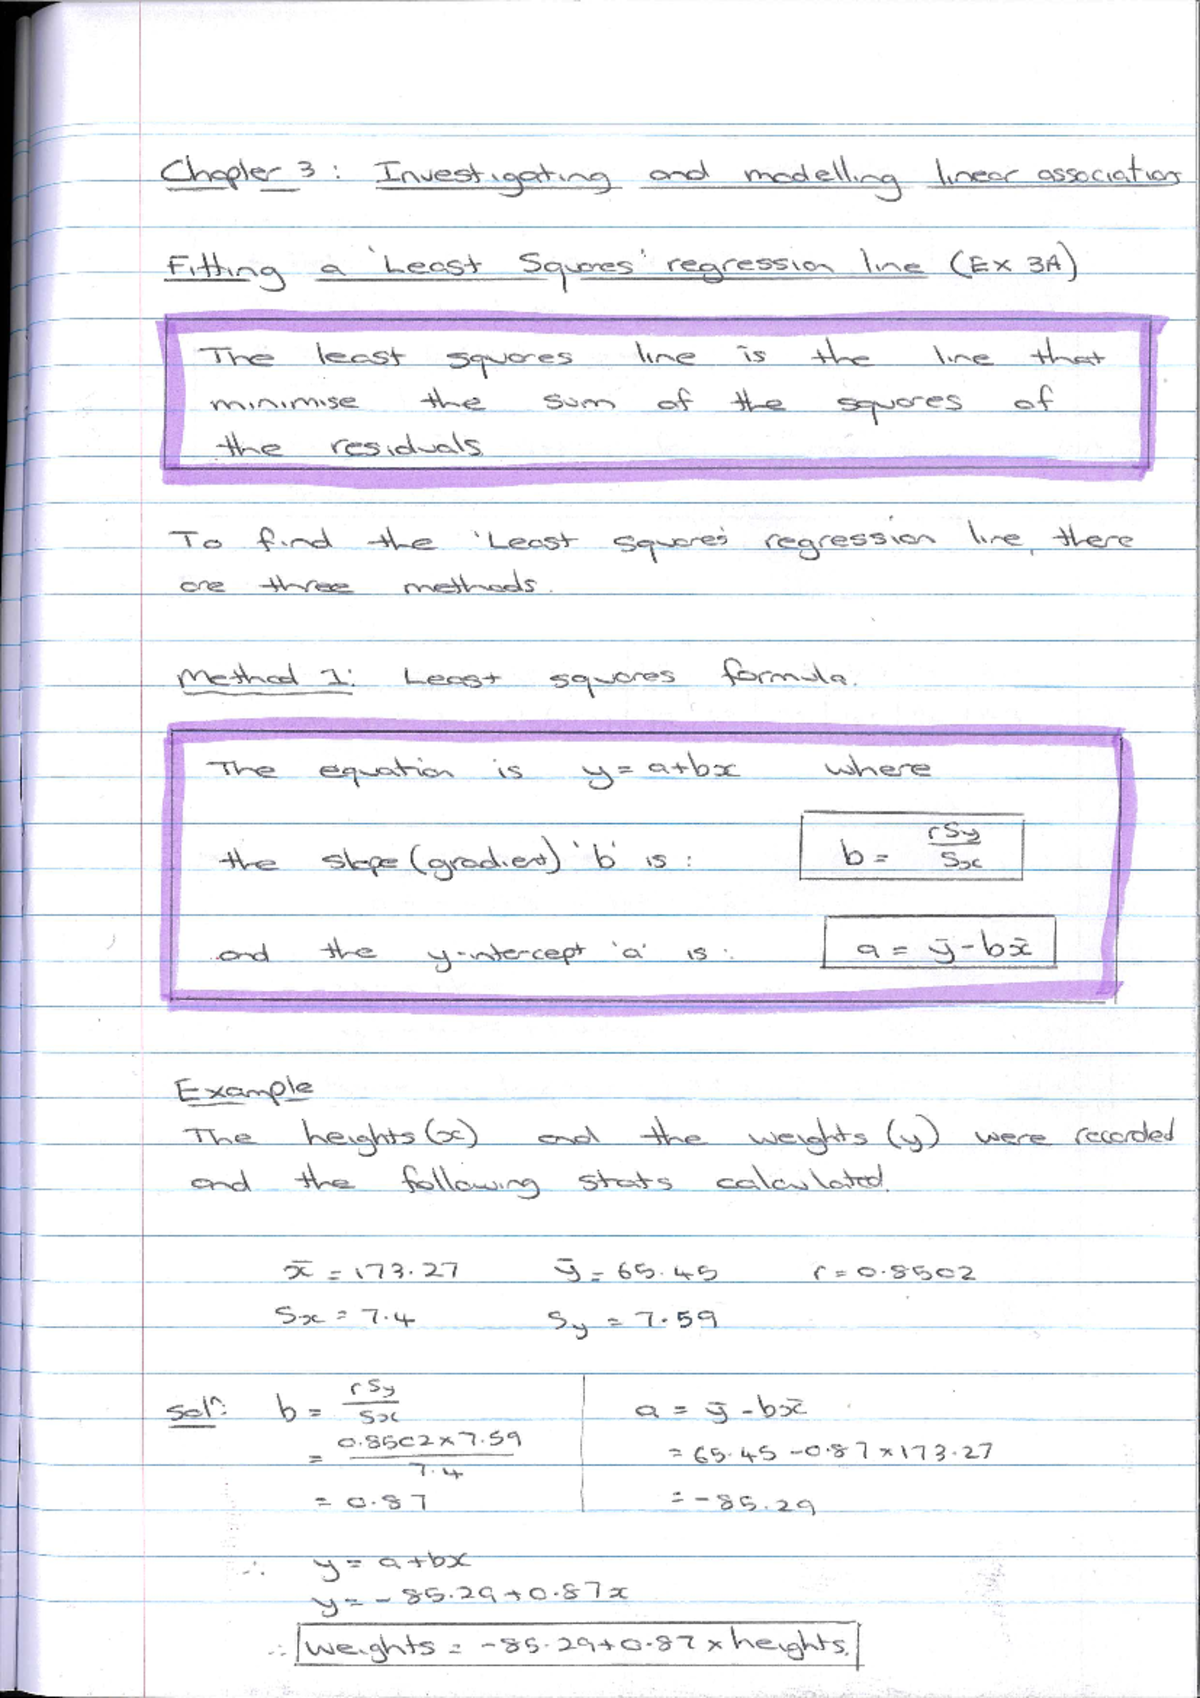 Chapter 3: Investigating and modelling linear association
Fitting a 'Least Squares' regression line (Ex 3A)
The least squares line is the line that
minimise the sum of the squares of
the residuals
To find the 'Least squares' regression line, there
are three methods.
Method 1: Least squares formula.
The equation is y = a+bx where
the slope (gradient) 'b' is: b = rSy/Sx
and the y-intercept 'a' is: a = ȳ - bx̄
Example
The heights (x) and the weights (y) were recorded
and the following stats calculated.
x̄ = 173.27 ȳ = 65.45 r = 0.8502
Sx = 7.4 Sy = 7.59
Solⁿ: b = rSy/Sx a = ȳ - bx̄
= 0.8502×7.59/7.4 = 65.45 - 0.87×173.27
= 0.87 = -85.29
∴ y = a+bx
y = -85.29+0.87x
∴ weights = -85.29+0.87×heights.